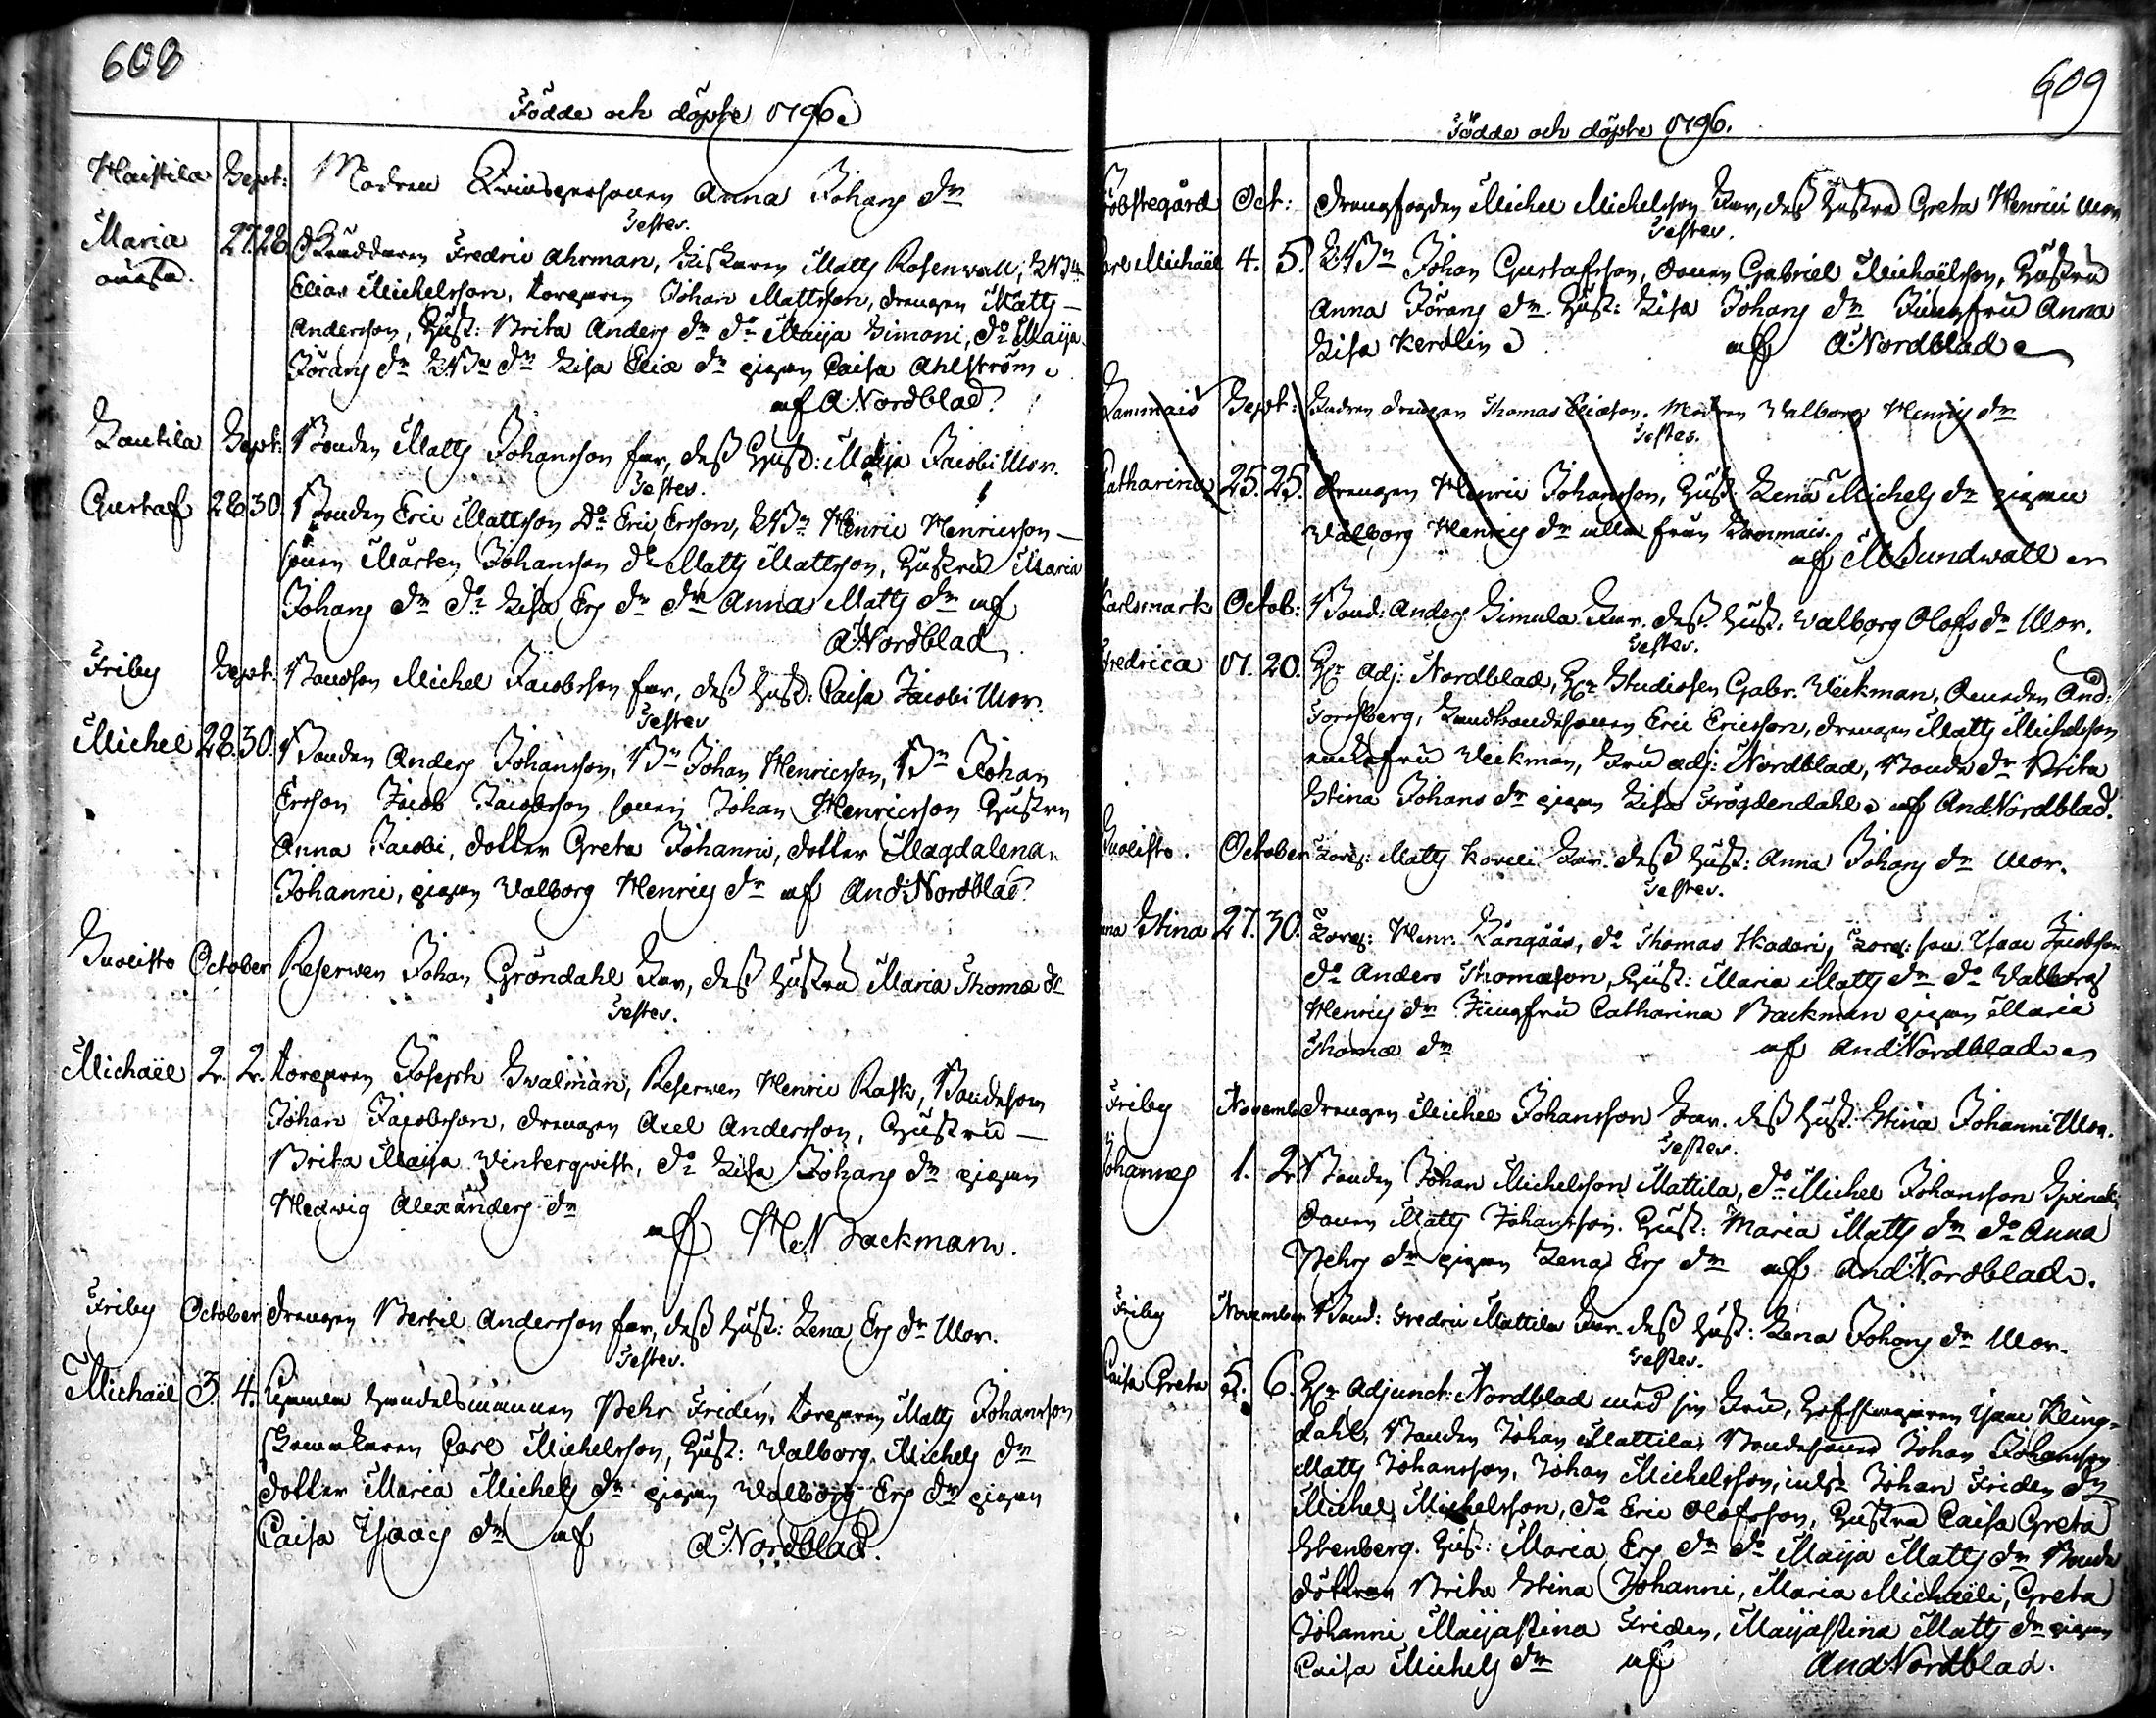 608
Födde och döpte 1796
Haistila Sept: Modren Qvinspersonen Anna Johans dr
Testes.
Maria 27. 28. Skräddaren Fredric Ahrman, Fiskaren Matts Rosenwall,
oäkta. Elias Michelsson, torparen Johan Mattsson, drengen Matts
Andersson, Hust: Brita Anders dr do Maija Simoni, do Maija
Jörans dr dr Lisa Eliæ dr pigan Caisa Ahlström
af A Nordblad
Sautila Sept: Bonden Matts Johansson far, dess Hust: Maija Jacobi Mor.
Testes.
Gustaf 28 30 Bonden Eric Mattsson Do Eric Ersson, Henric Henricsson
sonen Mårten Johansson do Matts Mattsson, Hustru Maria
Johans dr do Lisa Ers dr dr Anna Matts dr af
A Nordblad
Friby Sept: Bondson Michel Jacobsson far, dess Hust: Caisa Jacobi Mor.
Testes
Michel 28. 30. Bonden Anders Johansson, Bn Johan Henricsson, Bn Johan
Ersson Jacob Jacobsson sonen Johan Henricsson Hustru
Anna Jacobi, dotter Greta Johanni, dotter Magdalena
Johanni, pigan Valborg Henrics dr af And: Nordblad
Suolisto October Reserven Johan Gröndahl Far, dess Hustru Maria Thomæ dr
Testes.
Michaël 2. 2. torparen Joseph Svalman, Reserven Henric Rask, Bondeson
Johan Jacobsson, drengen Axel Andersson, Hustru
Brita Maija Winterqvist, do Lisa Johans dr pigan
Hedvig Alexanders dr
af H: N Backman.
Friby October drengen Bertil Andersson far, dess Hust: Lena Ers dr Mor.
Testes.
Michaël 3. 4. handelsmannen Pehr Friden, torparen Matts Johansson
Skomakaren Carl Michelsson, Hust: Valborg Michels dr
dotter Maria Michels dr pigan Valborg Ers dr pigan
Caisa Isaacs dr af A Nordblad.
609
Födde och döpte 1796.
Oct: drengfogden Michel Michelsson Far, dess Hustru Greta Henrici Mor
Testes.
Carl Michaël 4. 5. Johan Gustafsson, sonen Gabriel Michaëlsson, Hustru
Anna Jörans dr. Hust: Lisa Johans dr Jungfru Anna
Lisa Kerdlin af A Nordblad
Lammais Sept: Fadren drengen Thomas Eliasson. Modren Valborg Henrics dr
Testes.
Catharina 25. 25. drengen Henric Johansson, Hust: Lena Michels dr pigan
Valborg Henrics dr alla från Lammais.
af M Sundwall
Karlsmark Octob: Bond: Anders Simula Far. dess Hust. Valborg Olofs dr Mor.
Testes.
Fredrica 17. 20. Hr Adj: Nordblad, Hr Studiosen Gabr. Wickman, And:
Forssberg, Landbondesonen Eric Ericsson, drengen Matts Michelsson
enkefru Wickman, Fru adj: Nordblad, Bonde dr Brita
Stina Johans dr pigan Lisa Frögdendahl af And Nordblad.
Suolisto. October Torp: Matts Koveli Far. dess Hust: Anna Johans dr Mor.
Testes.
Anna Stina 27. 30. Torp: Henr. Långåås, do Thomas Skadari, Torp: son Isaac Jacobsson
do Anders Thomasson, Hust: Maria Matts dr do Valborg
Henrics dr Jungfru Catharina Backman pigan Maria
Thomæ dr af And Nordblad
Friby Novemb drengen Michel Johansson Far. dess Hust: Stina Johanni Mor.
Testes.
Johannes 1. 2. Bonden Johan Michelsson Mattila, do Michel Johansson
Sonen Matts Johansson. Hust: Maria Matts dr do Anna
Pehrs dr pigan Lena Ers dr af And: Nordblad.
Friby November Bond: Fredric Mattila Far. dess Hust: Lena Johans dr Mor.
Testes.
Caisa Greta 5. 6. Hr Adjunct: Nordblad med sin Fru, Isaac Kling-
dahl, Bonden Johan Mattila, Bondesonen Johan Johansson
Matts Johansson, Johan Michelsson, Johan Friden
Michel Michelsson, do Eric Olofsson, Hustru Caisa Greta
Stenberg. Hust: Maria Ers dr do Maija Matts dr Bonde
döttrar Brita Stina Johanni, Maria Michaëli, Greta
Johanni Maijastina Friden, Maijastina Matts dr pigan
Caisa Michels dr af And Nordblad.